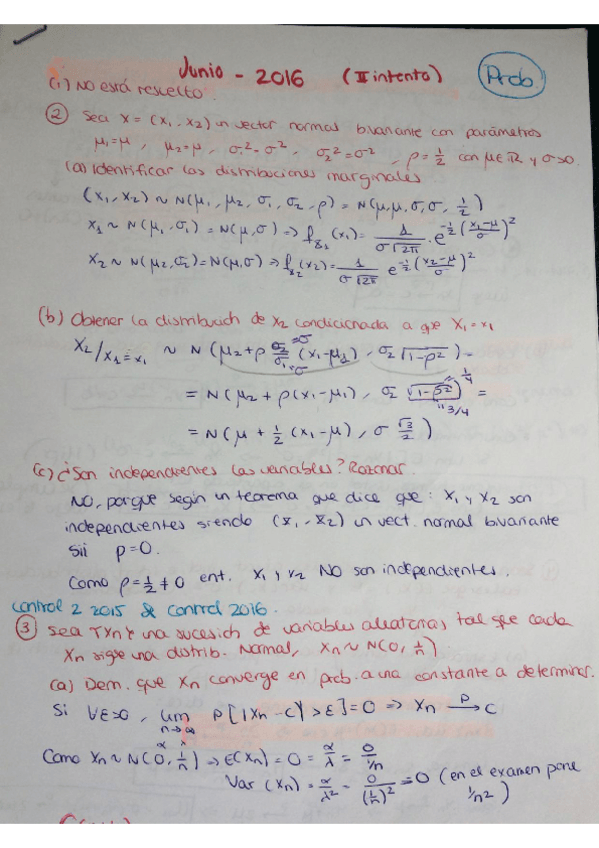 Junio - 2016 (II intento) Prob.
(1) NO está resuelto.
② Sea X = (X₁, X₂) un vector normal bivariante con parámetros
μ₁=μ, μ₂=μ, σ₁²=σ², σ₂²=σ², ρ=1/2 con μ∈ℝ y σ>0.
(a) Identificar las distribuciones marginales.
(X₁, X₂) ~ N(μ₁, μ₂, σ₁, σ₂, ρ) = N(μ, μ, σ, σ, 1/2)
X₁ ~ N(μ₁, σ₁) = N(μ, σ) => f_x₁(x₁) = 1/(σ√2π) · e^(-1/2((x₁-μ)/σ)²)
X₂ ~ N(μ₂, σ₂) = N(μ, σ) => f_x₂(x₂) = 1/(σ√2π) e^(-1/2((x₂-μ)/σ)²)
(b) Obtener la distribución de X₂ condicionada a que X₁ = x₁
X₂/X₁=x₁ ~ N(μ₂ + ρ σ₂/σ₁ (x₁-μ₁), σ₂ √1-ρ²) =
=σ
=σ
= N(μ₂ + ρ(x₁-μ₁), σ₂ √1-ρ²) =
1/4
"3/4
= N(μ + 1/2 (x₁-μ), σ √3/2)
(c) ¿Son independientes las variables? Razonar.
NO, porque según un teorema que dice que: X₁ y X₂ son
independientes siendo (X₁, X₂) un vect. normal bivariante
sii ρ=0.
Como ρ=1/2≠0 ent. X₁ y X₂ NO son independientes.
Control 2 2015 & Control 2016.
③ Sea {Xn} una sucesión de variables aleatorias tal que cada
Xn sigue una distrib. Normal, Xn ~ N(0, 1/n)
(a) Dem. que Xn converge en prob. a una constante a determinar.
Si ∀ε>0, lim n→∞ P[|Xn - C| > ε] = 0 => Xn →P C
α λ
Como Xn ~ N(0, 1/n) => E(Xn) = 0 = α/λ = 0/(1/n)
Var (Xn) = α/λ² = 0/(1/n)² = 0 (en el examen pone
1/n²)